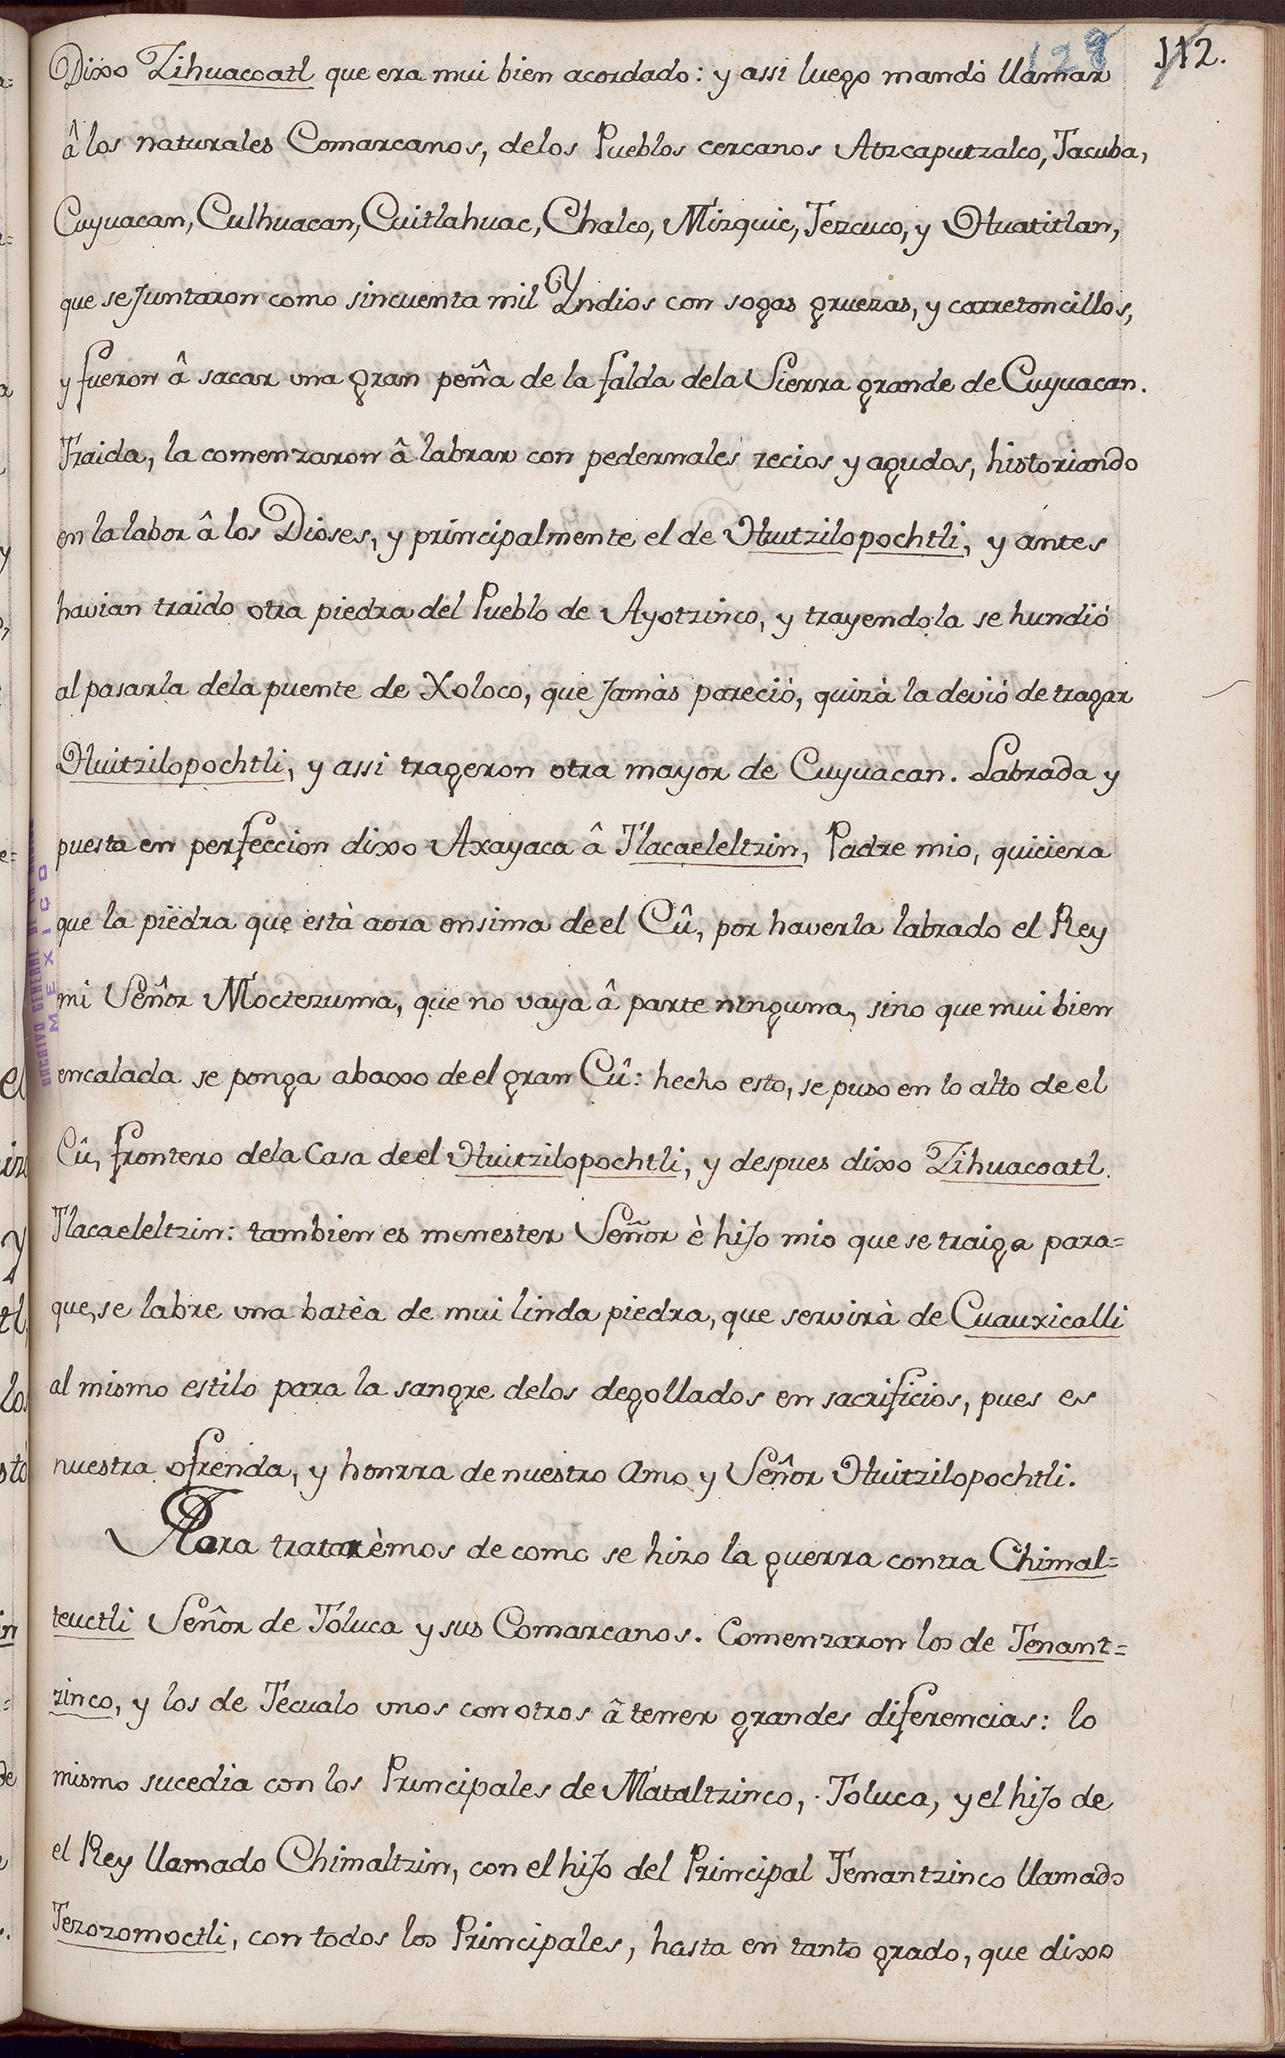 128 112.
Dixo Zihuacoatl que era mui bien acordado: y assi luego mandó llamar
â los naturales Comarcanos, delos Pueblos cercanos Atzcaputzalco, Tacuba,
Cuyuacan, Culhuacan, Cuitlahuac, Chalco, Mizquic, Tezcuco, y Huatitlan,
que se Juntaron como sincuenta mil Yndios con sogas gruezas, y carretoncillos,
y fueron â sacar una gran peña de la falda dela Sierra grande de Cuyuacan.
Traida, la comenzaron â labrar con pedernales recios y agudos, historiando
en la labor â los Dioses, y principalmente el de Huitzilopochtli, y antes
havian traido otra piedra del Pueblo de Ayotzinco, y trayendola se hundió
al pasarla dela puente de Xoloco, que Jamàs pareció, quizà la devió de tragar
Huitzilopochtli, y assi trageron otra mayor de Cuyuacan. Labrada y
puesta en perfeccion dixo Axayaca â Tlacaeleltzin, Padre mio, quiciera
que la piedra que está aora ensima de el Cû, por haverla labrado el Rey
mi Señor Moctezuma, que no vaya â parte ninguna, sino que mui bien
encalada se ponga abaxo de el gran Cû: hecho esto, se puso en lo alto de el
Cû, frontero dela Casa de el Huitzilopochtli, y despues dixo Zihuacoatl
Tlacaeleltzin: tambien es menester Señor è hiJo mio que se traiga para=
que, se labre una batèa de mui linda piedra, que servirà de Cuauxicalli
al mismo estilo para la sangre delos degollados en sacrificios, pues es
nuestra ofrenda, y honrra de nuestro Amo y Señor Huitzilopochtli.
Aora tratarèmos de como se hizo la guerra contra Chimal=
teuctli Señor de Toluca y sus Comarcanos. Comenzaron los de Tenant=
zinco, y los de Tecualo unos con otros â tener grandes diferencias: lo
mismo sucedia con los Principales de Mataltzinco, Toluca, y el hiJo de
el Rey llamado Chimaltzin, con el hiJo del Principal Tenantzinco llamado
Tezozomoctli, con todos los Principales, hasta en tanto grado, que dixo